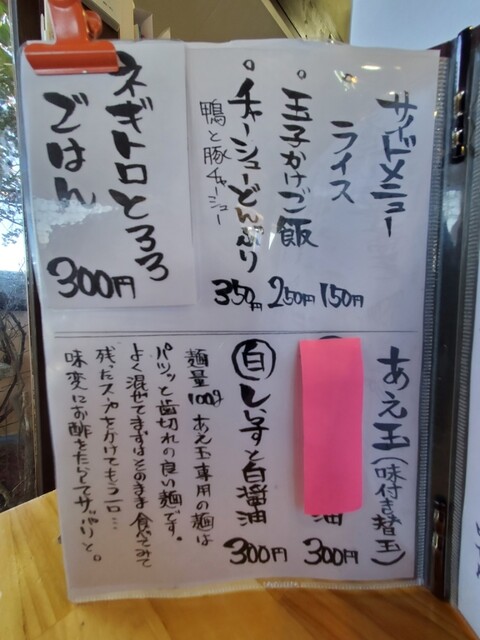 サイドメニュー
ライス
150円
玉子かけご飯
250円
チャーシューどんぶり
鴨と豚チャーシュー
350円
ネギトロとろろ
ごはん
300円
あえ玉(味付き替玉)
油
300円
白 しらすと白醤油
300円
麺量100g あえ玉専用の麺は
パツッと歯切れの良い麺です。
よく混ぜてまずはそのまま食べてみて
残ったスープをかけてもヨロ…
味変にお酢をたらしてサッパリと。